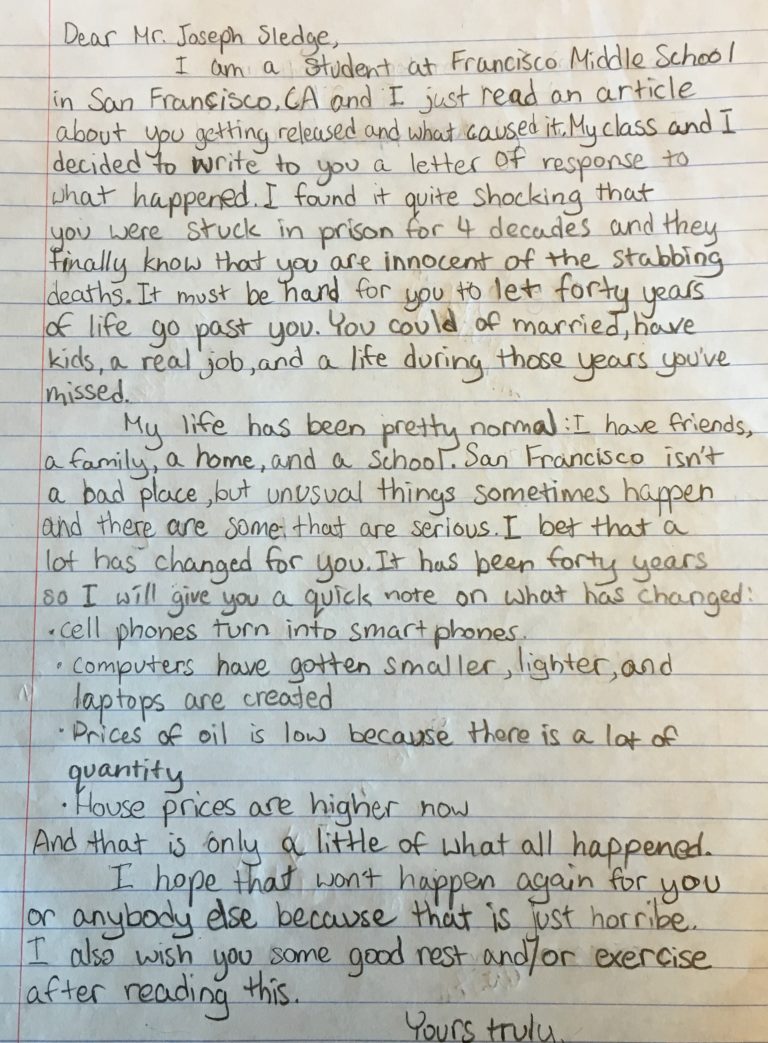 Dear Mr. Joseph Sledge,
I am a Student at Francisco Middle School
in San Francisco, CA and I just read an article
about you getting released and what caused it. My class and I
decided to write to you a letter of response to
what happened. I found it quite shocking that
you were stuck in prison for 4 decades and they
finally know that you are innocent of the stabbing
deaths. It must be hard for you to let forty years
of life go past you. You could of married, have
kids, a real job, and a life during those years you've
missed.
My life has been pretty normal: I have friends,
a family, a home, and a school. San Francisco isn't
a bad place, but unusual things sometimes happen
and there are some that are serious. I bet that a
lot has changed for you. It has been forty years
so I will give you a quick note on what has changed:
• cell phones turn into smart phones.
• computers have gotten smaller, lighter, and
laptops are created
• Prices of oil is low because there is a lot of
quantity
• House prices are higher now
And that is only a little of what all happened.
I hope that won't happen again for you
or anybody else because that is just horribe.
I also wish you some good rest and/or exercise
after reading this.
Yours truly,